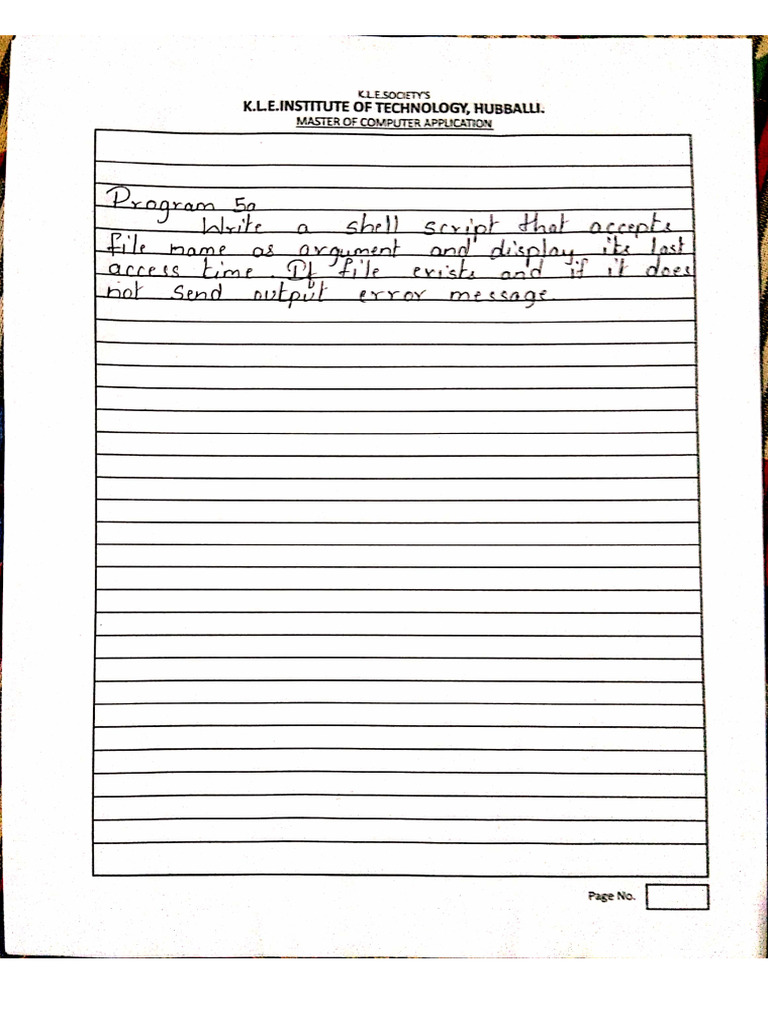 K.L.E.SOCIETY'S
K.L.E.INSTITUTE OF TECHNOLOGY, HUBBALLI.
MASTER OF COMPUTER APPLICATION
Program 5a
Write a shell script that accepts
file name as argument and display its last
access time. If file exists and if it does
not send output error message.
Page No.